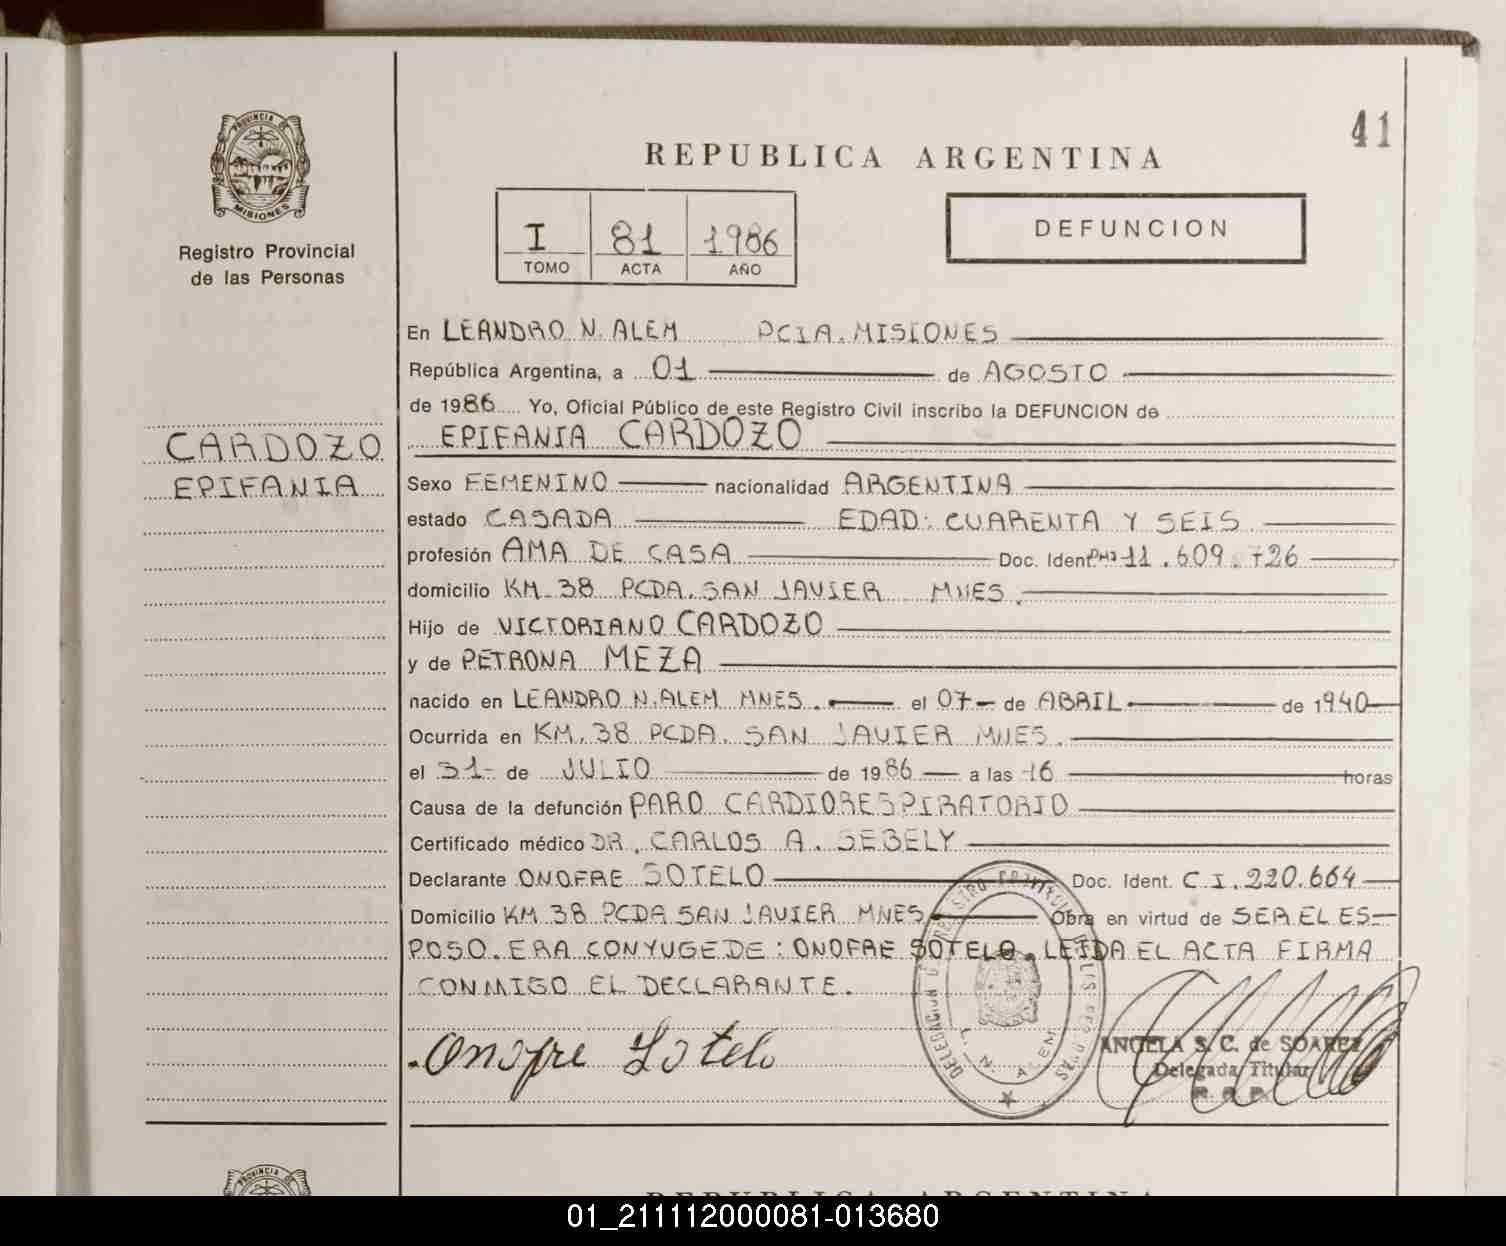 41
PROVINCIA DE
MISIONES
Registro Provincial
de las Personas
REPUBLICA ARGENTINA
I 81 1986
TOMO ACTA AÑO
DEFUNCION
CARDOZO
EPIFANIA
En LEANDRO N. ALEM PCIA. MISIONES
República Argentina, a 01 de AGOSTO
de 1986 Yo, Oficial Público de este Registro Civil inscribo la DEFUNCION de
EPIFANIA CARDOZO
Sexo FEMENINO nacionalidad ARGENTINA
estado CASADA EDAD: CUARENTA Y SEIS
profesión AMA DE CASA Doc. Ident. 11.609.726
domicilio KM. 38 PCDA. SAN JAVIER MNES.
Hijo de VICTORIANO CARDOZO
y de PETRONA MEZA
nacido en LEANDRO N. ALEM MNES. el 07 de ABRIL de 1940
Ocurrida en KM. 38 PCDA. SAN JAVIER MNES.
el 31 de JULIO de 1986 a las 16 horas
Causa de la defunción PARO CARDIORESPIRATORIO
Certificado médico DR. CARLOS A. SEBELY
Declarante ONOFRE SOTELO Doc. Ident. C.I. 220.664
Domicilio KM 38 PCDA SAN JAVIER MNES Obra en virtud de SER EL ES-
POSO. ERA CONYUGE DE: ONOFRE SOTELO. LEIDA EL ACTA FIRMA
CONMIGO EL DECLARANTE.
Onofre Sotelo
L. N. ALEM
ANGELA S. C. de SOAREZ
Delegada Titular
PROVINCIA DE
REPUBLICA ARGENTINA
01_211112000081-013680